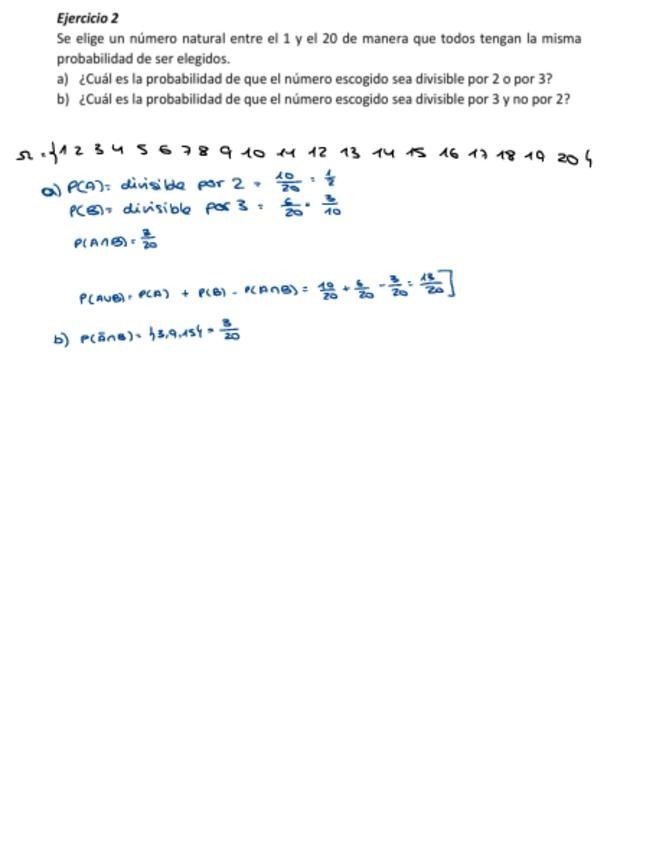 Ejercicio 2
Se elige un número natural entre el 1 y el 20 de manera que todos tengan la misma
probabilidad de ser elegidos.
a) ¿Cuál es la probabilidad de que el número escogido sea divisible por 2 o por 3?
b) ¿Cuál es la probabilidad de que el número escogido sea divisible por 3 y no por 2?
Ω = {1 2 3 4 5 6 7 8 9 10 11 12 13 14 15 16 17 18 19 20}
a) P(A) = divisible por 2 = 10/20 = 1/2
P(B) = divisible por 3 = 6/20 = 3/10
P(A∩B) = 3/20
P(A∪B) = P(A) + P(B) - P(A∩B) = 10/20 + 6/20 - 3/20 = 13/20]
b) P(Ā∩B) = {3,9,15} = 3/20